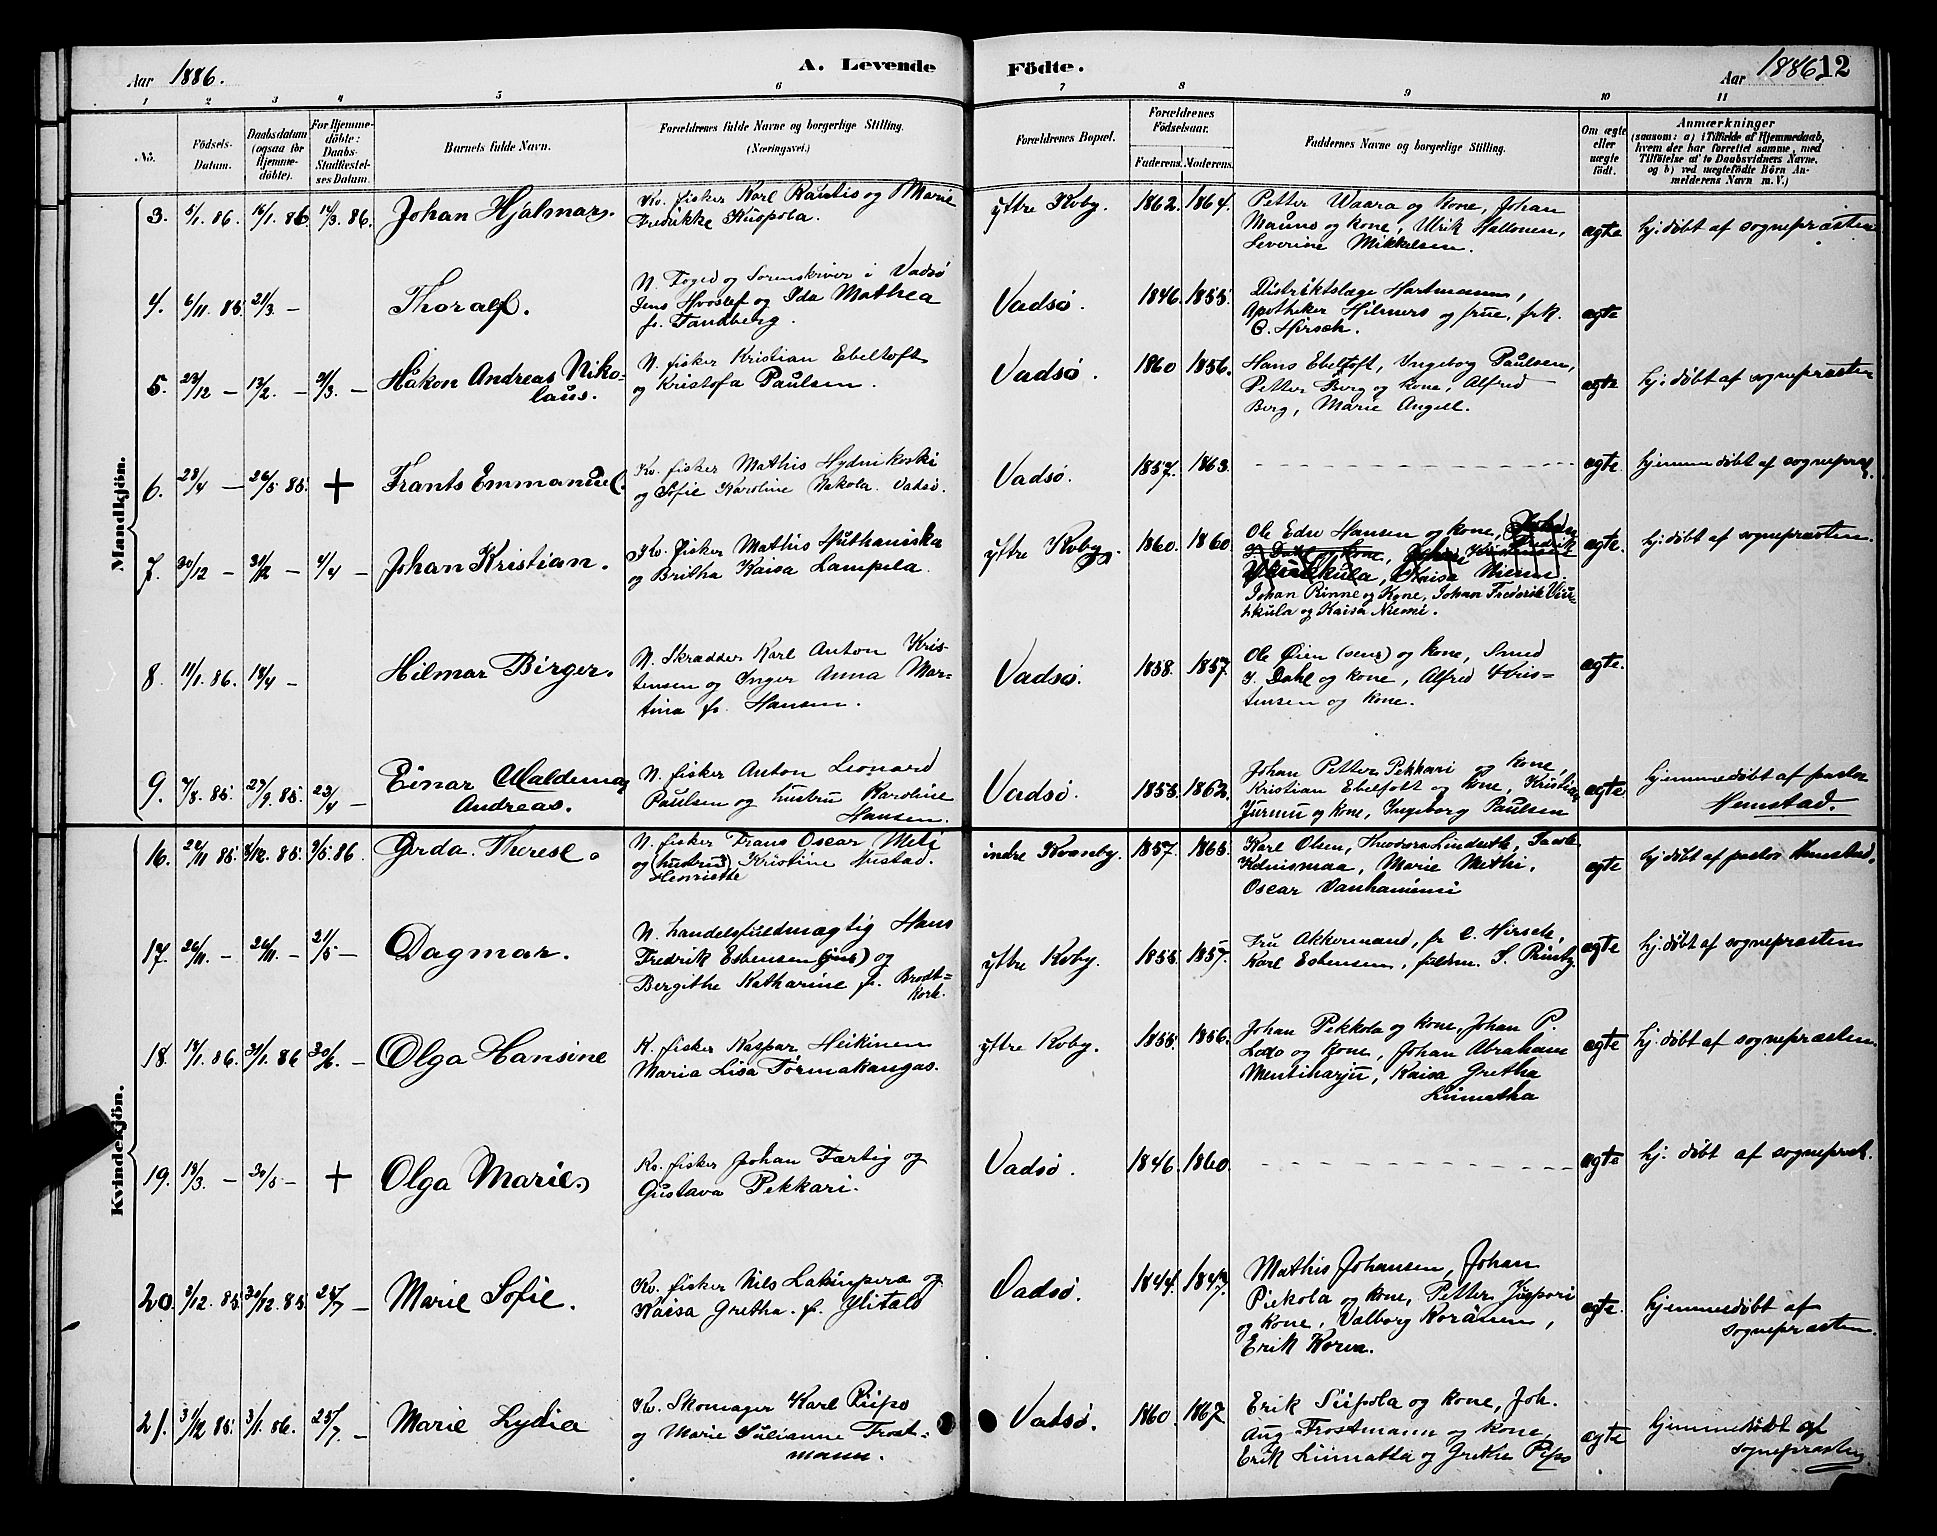 Aar 1886.
A. Levende Födte.
Aar 1886 12
1 2 3 4 5 6 7 8 9 10 11
No.
Födsels-Datum.
Daabsdatum (ogsaa for Hjemme-döbte).
For Hjemme-döbte: Daabs-Stadfæstel-ses Datum.
Barnets fulde Navn.
Forældrenes fulde Navne og borgerlige Stilling. (Næringsvei.)
Forældrenes Bopæl.
Forældrenes Födselsaar.
Faderens. Moderens.
Faddernes Navne og borgerlige Stilling.
Om ægte eller uægte födt.
Anmærkninger
(saasom: a) i Tilfælde af Hjemmedaab, hvem der har forrettet samme, med Tilföielse af to Daabsvidners Navne, og b) ved uægtefödte Börn An-melderens Navn m. V.)
Mandkjön.
3. 5/1. 86. 16/1. 86. 14/3. 86. Johan Hjalmar.
Kv. fisker Karl Rautis og Marie
Fredrikke Kuspola.
ytre Kvby. 1862. 1864.
Petter Waara og kone, Johan
Mauno og kone, Ulrik Hallonen,
Leverine Mikkelsen.
ægte hj. døbt af sognepræsten
4. 6/11. 85. 21/3. — Thoralf.
N. Foged og Sorenskriver i Vadsø
Jens Hvoslef og Ida Mathea
f. Tandberg.
Vadsø. 1846. 1855.
Distriktslæge Hartmann,
Apotheker Hilmers og frue, frk.
C. Hirsch.
ægte
5. 23/12 — 13/2. — 21/3. — Håkon Andreas Niko-
laus.
N. fisker Kristian Ebeltoft
og Kristofa Paulsen.
Vadsø. 1860 1856.
Hans Ebeltoft, Ingeborg Paulsen,
Petter Berg og kone, Alfred
Berg, Marie Angell.
ægte hj. døbt af sognepræsten
6. 28/4 — 26/5 85. + Frants Emmanuel.
Kv. fisker Mathis Hydnikoski
og Sofie Karoline Vadsø.
Vadsø. 1857. 1863.
ægte hjemmedøbt af sognepræst.
7. 30/12 — 31/12 — 4/4 — Johan Kristian.
Kv. fisker Mathis
og Britha Kaisa Lampela.
ytre Kvby. 1860. 1860.
Ole Edv Hansen og kone,
Johan Rinne og Kone, Johan Frederik Viin-
kkula og Kaisa Niemi.
ægte. hj. døbt af sognepræsten.
8. 11/1. 86. 18/4 — Hilmar Birger.
N. Skrædder Karl Anton Kris-
tensen og Inger Anna Mar-
tina f. Hansen.
Vadsø. 1858. 1857.
Ole Øien (sen) og kone, Smed
I. Dahl og kone, Alfred Kris-
tensen og kone.
ægte.
9. 7/8. 85. 27/9. 85. 23/4 — Einar Waldemar
Andreas.
N. fisker Anton Leonard
Paulsen og hustru Karoline
Hansen.
Vadsø. 1853. 1862.
Johan Petter Pekkari og kone,
Kristian Ebeltoft og kone, Kristian
Jurmu og kone, Ingeborg Paulsen
ægte hjemmedøbt af pastor
Hemstad.
Kvindekjön.
16. 85. 85. 9/5. 86. Gerda Therese.
N. fisker Frans Oscar Meti
og (hustru) Kristine Mustad.
Henriette
indre Kvanby. 1857. 1865.
Karl Olsen, Theodora Linduth,
Marie Methi.
Oscar Vanhaniemi
ægte hj. døbt af pastor Hemstad.
17. 26/11. — 26/11. — 21/5 — Dagmar.
N. handelsfuldmægtig Hans
Fredrik Esbensen (jun) og
Bergithe Katharine f. Brodt-
korb.
ytre Kvby. 1855. 1857.
Fru Akkermand, fr C. Hirsch,
Karl Esbensen, fuldm. S. Rinby.
ægte hj. døbt af sognepræsten
18. 14/1. 86. 31/1. 86 30/6. — Olga Hansine
K. fisker Kaspar Heikinem
Maria Lisa Tormakangas.
ytre Kvby. 1855. 1856.
Johan Pekkola og kone, Johan P.
Lodo og kone, Johan Abraham
Mentiharju, Kaisa Gretha
Liimatha
ægte hj. døbt af sognepræsten.
19. 19/3. — 30/5 — + Olga Marie.
Kv. fisker Johan Færtig og
Gustava Pekkari.
Vadsø. 1846. 1860.
ægte hj. døbt af sognepræst.
20. 3/12. 85. 30/12. 85. 25/7 — Marie Sofie.
Kv. fisker Nils Latinpera og
Kaisa Gretha f. Ylitalo
Vadsø. 1844. 1847.
Mathis Johansen, Johan
Piekola og kone, Petter Juspori
og kone, Valborg Koranen,
Erik Korva.
ægte. hjemmedøbt af
sognepræsten.
21. 31/12 85. 3/1. 86. 25/7. — Marie Lydia
Kv. Skomager Karl Piipo
og Marie Julianne Frost-
mann.
Vadsø. 1860. 1867
Erik Siipola og kone, Joh.
Aug Frostmann og kone,
Erik Liimatta og Grethe Pipo
ægte hjemmedøbt af
sognepræsten